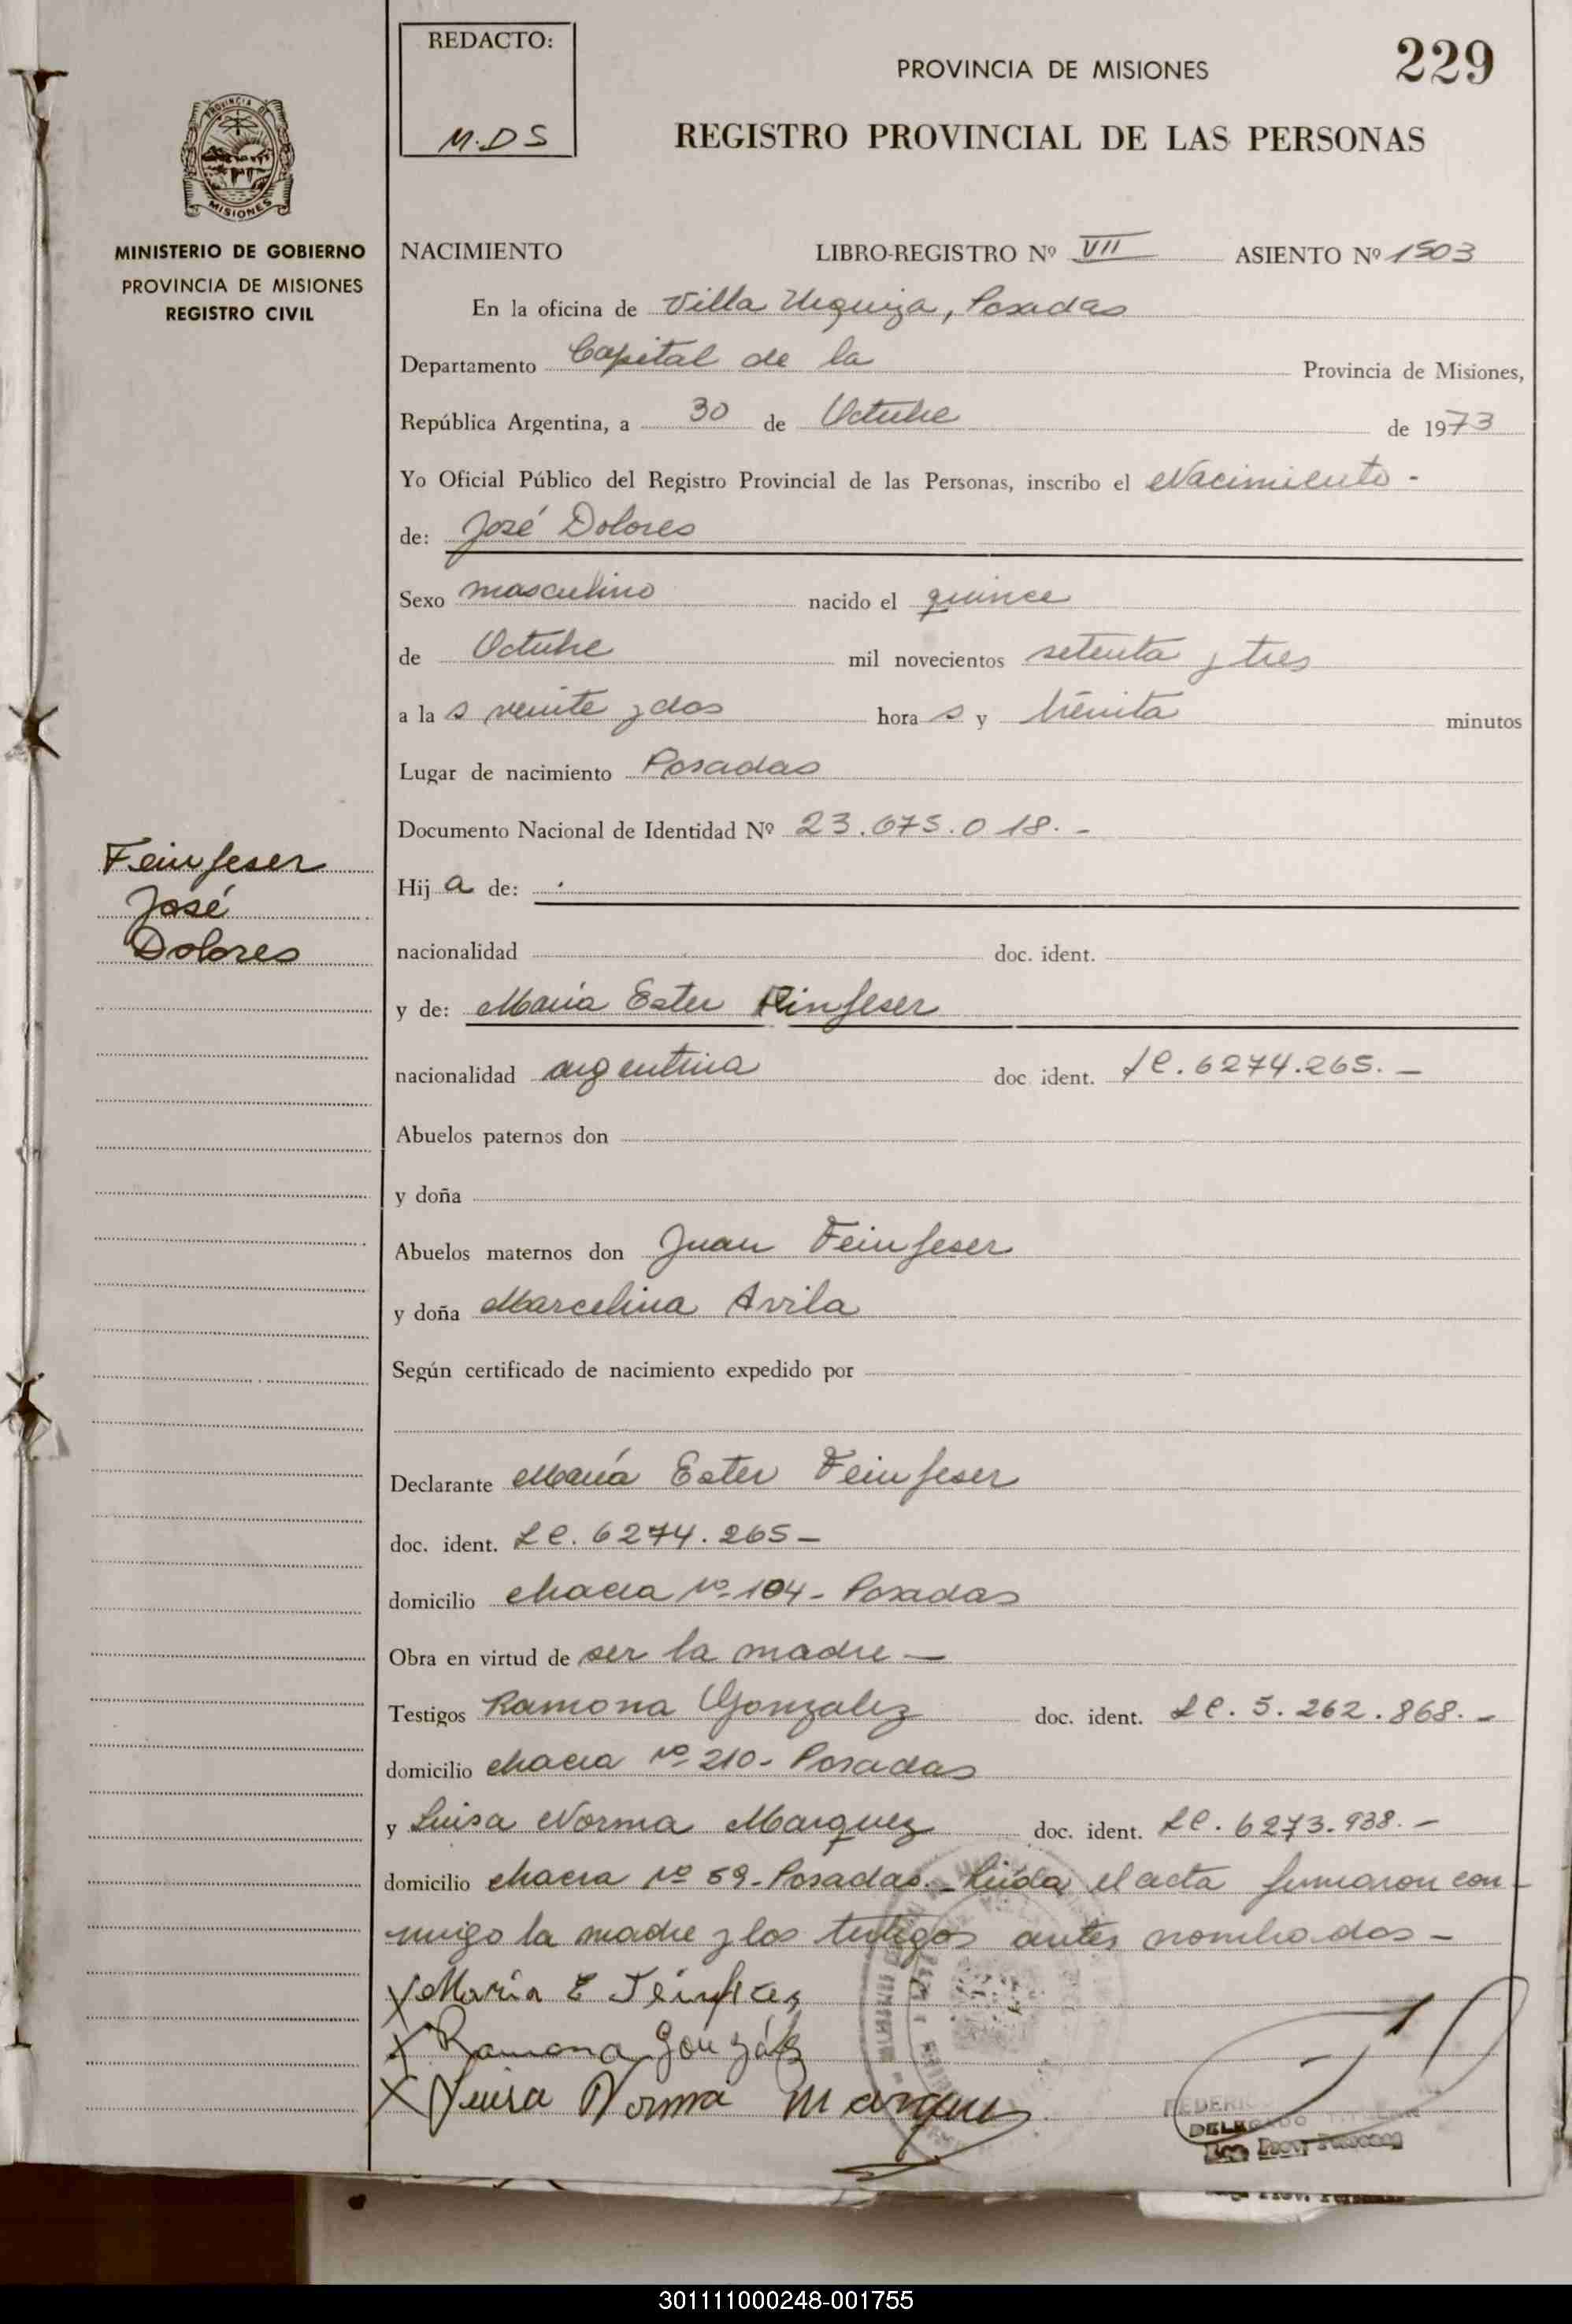 REDACTO:
M.DS
PROVINCIA DE MISIONES
229
REGISTRO PROVINCIAL DE LAS PERSONAS
PROVINCIA DE
MISIONES
MINISTERIO DE GOBIERNO
PROVINCIA DE MISIONES
REGISTRO CIVIL
NACIMIENTO LIBRO-REGISTRO Nº VII ASIENTO Nº 1503
En la oficina de Villa Urquiza, Posadas
Departamento Capital de la Provincia de Misiones,
República Argentina, a 30 de Octubre de 1973
Yo Oficial Público del Registro Provincial de las Personas, inscribo el Nacimiento -
de: José Dolores
Sexo masculino nacido el quince
de Octubre mil novecientos setenta y tres
a la s veinte y dos hora s y treinta minutos
Lugar de nacimiento Posadas
Documento Nacional de Identidad Nº 23.675.018.-
Feinfeser
José
Dolores
Hij a de:
nacionalidad doc. ident.
y de: María Ester Finfeser
nacionalidad argentina doc ident. LC.6274.265.-
Abuelos paternos don
y doña
Abuelos maternos don Juan Feinfeser
y doña Marcelina Avila
Según certificado de nacimiento expedido por
Declarante María Ester Feinfeser
doc. ident. LC.6274.265-
domicilio chacra Nº 104- Posadas
Obra en virtud de ser la madre -
Testigos Ramona Gonzalez doc. ident. LC.5.262.868.-
domicilio chacra Nº 210- Posadas
y Luisa Norma Marquez doc. ident. LC.6273.938.-
domicilio chacra Nº 59-Posadas.- Leída el acta firmaron con-
migo la madre y los testigos antes nombrados -
X María E Feinfeser
X Ramona González
X Luisa Norma Marquez
DELEGADO TITULAR
Reg. Prov. Personas
301111000248-001755